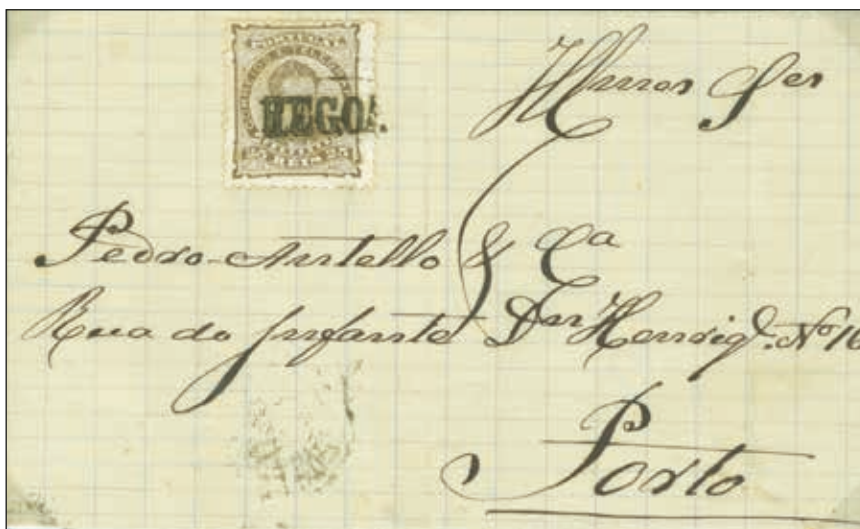 REGOA.
Illmos Snres
Pedro Antello & Ca
Rua do Infante Dn Henriqe. No 16
Porto